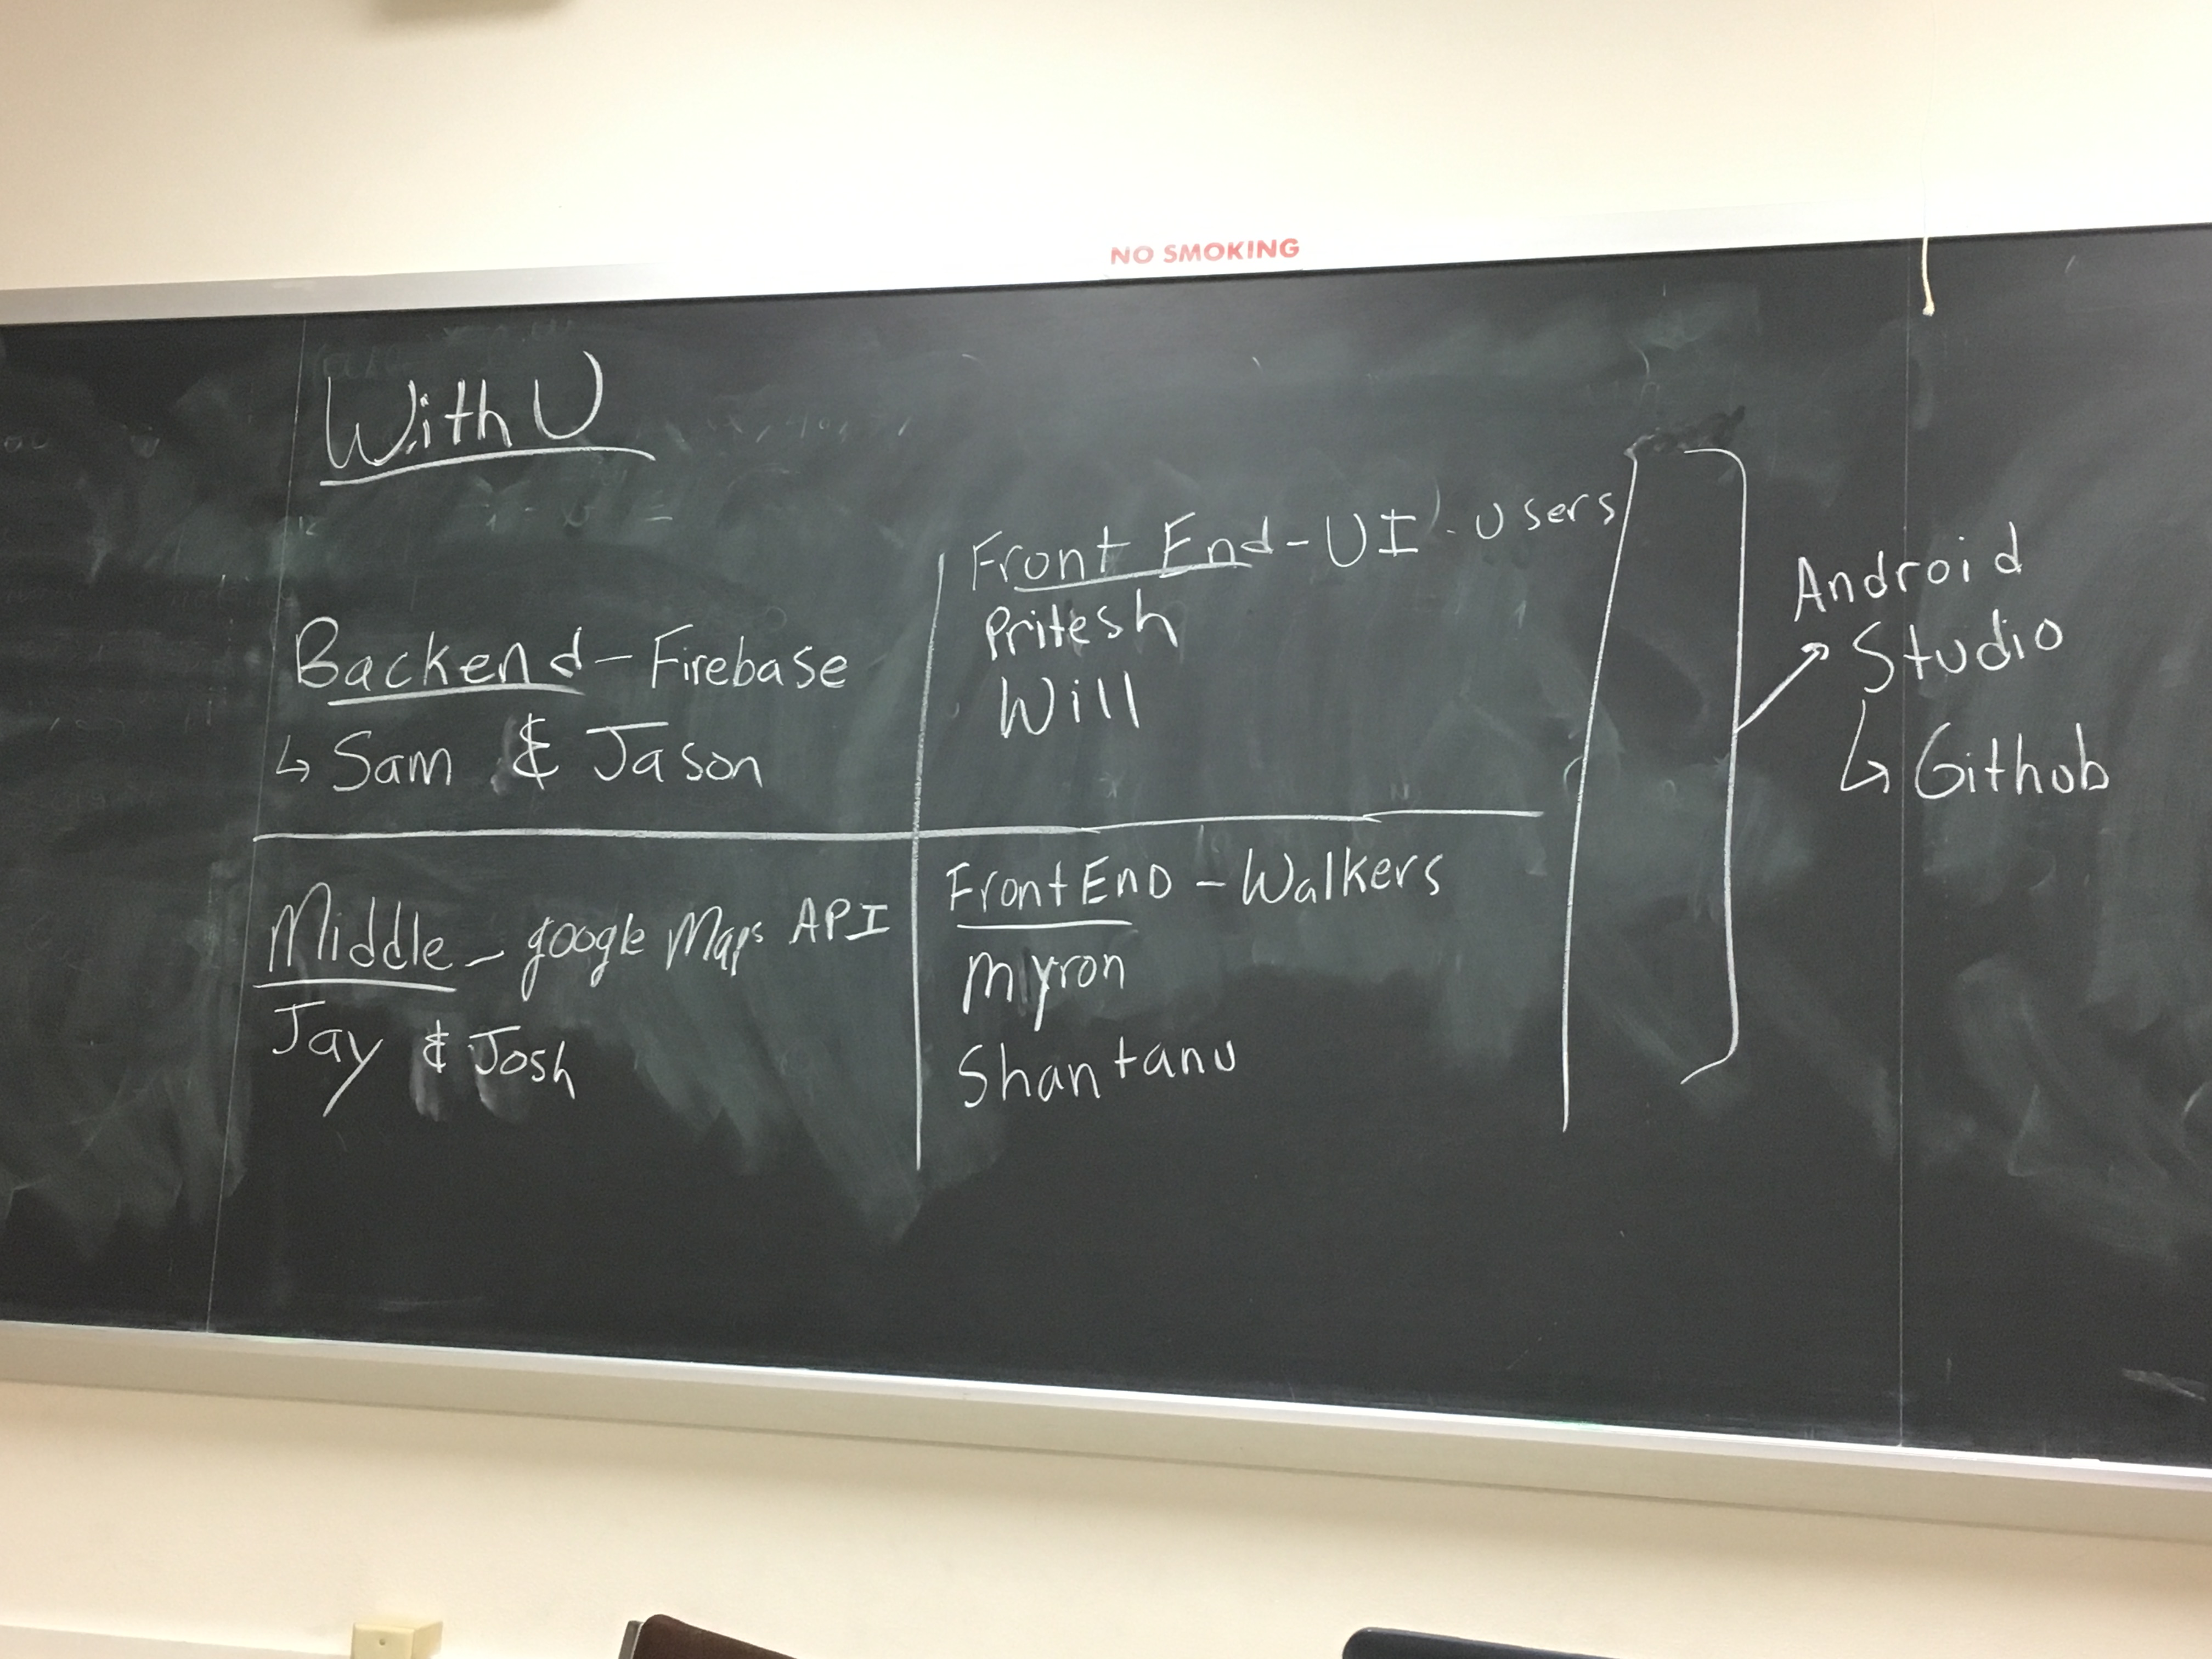 NO SMOKING
With U
Backend - Firebase
↳ Sam & Jason
Front End - UI - Users
Pritesh
Will
Middle - google Maps API
Jay & Josh
FrontEnd - Walkers
Myron
Shantanu
Android
Studio
↳ Github